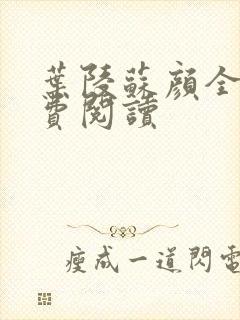 葉陵蘇顔全
費閱讀
瘦成一道閃電